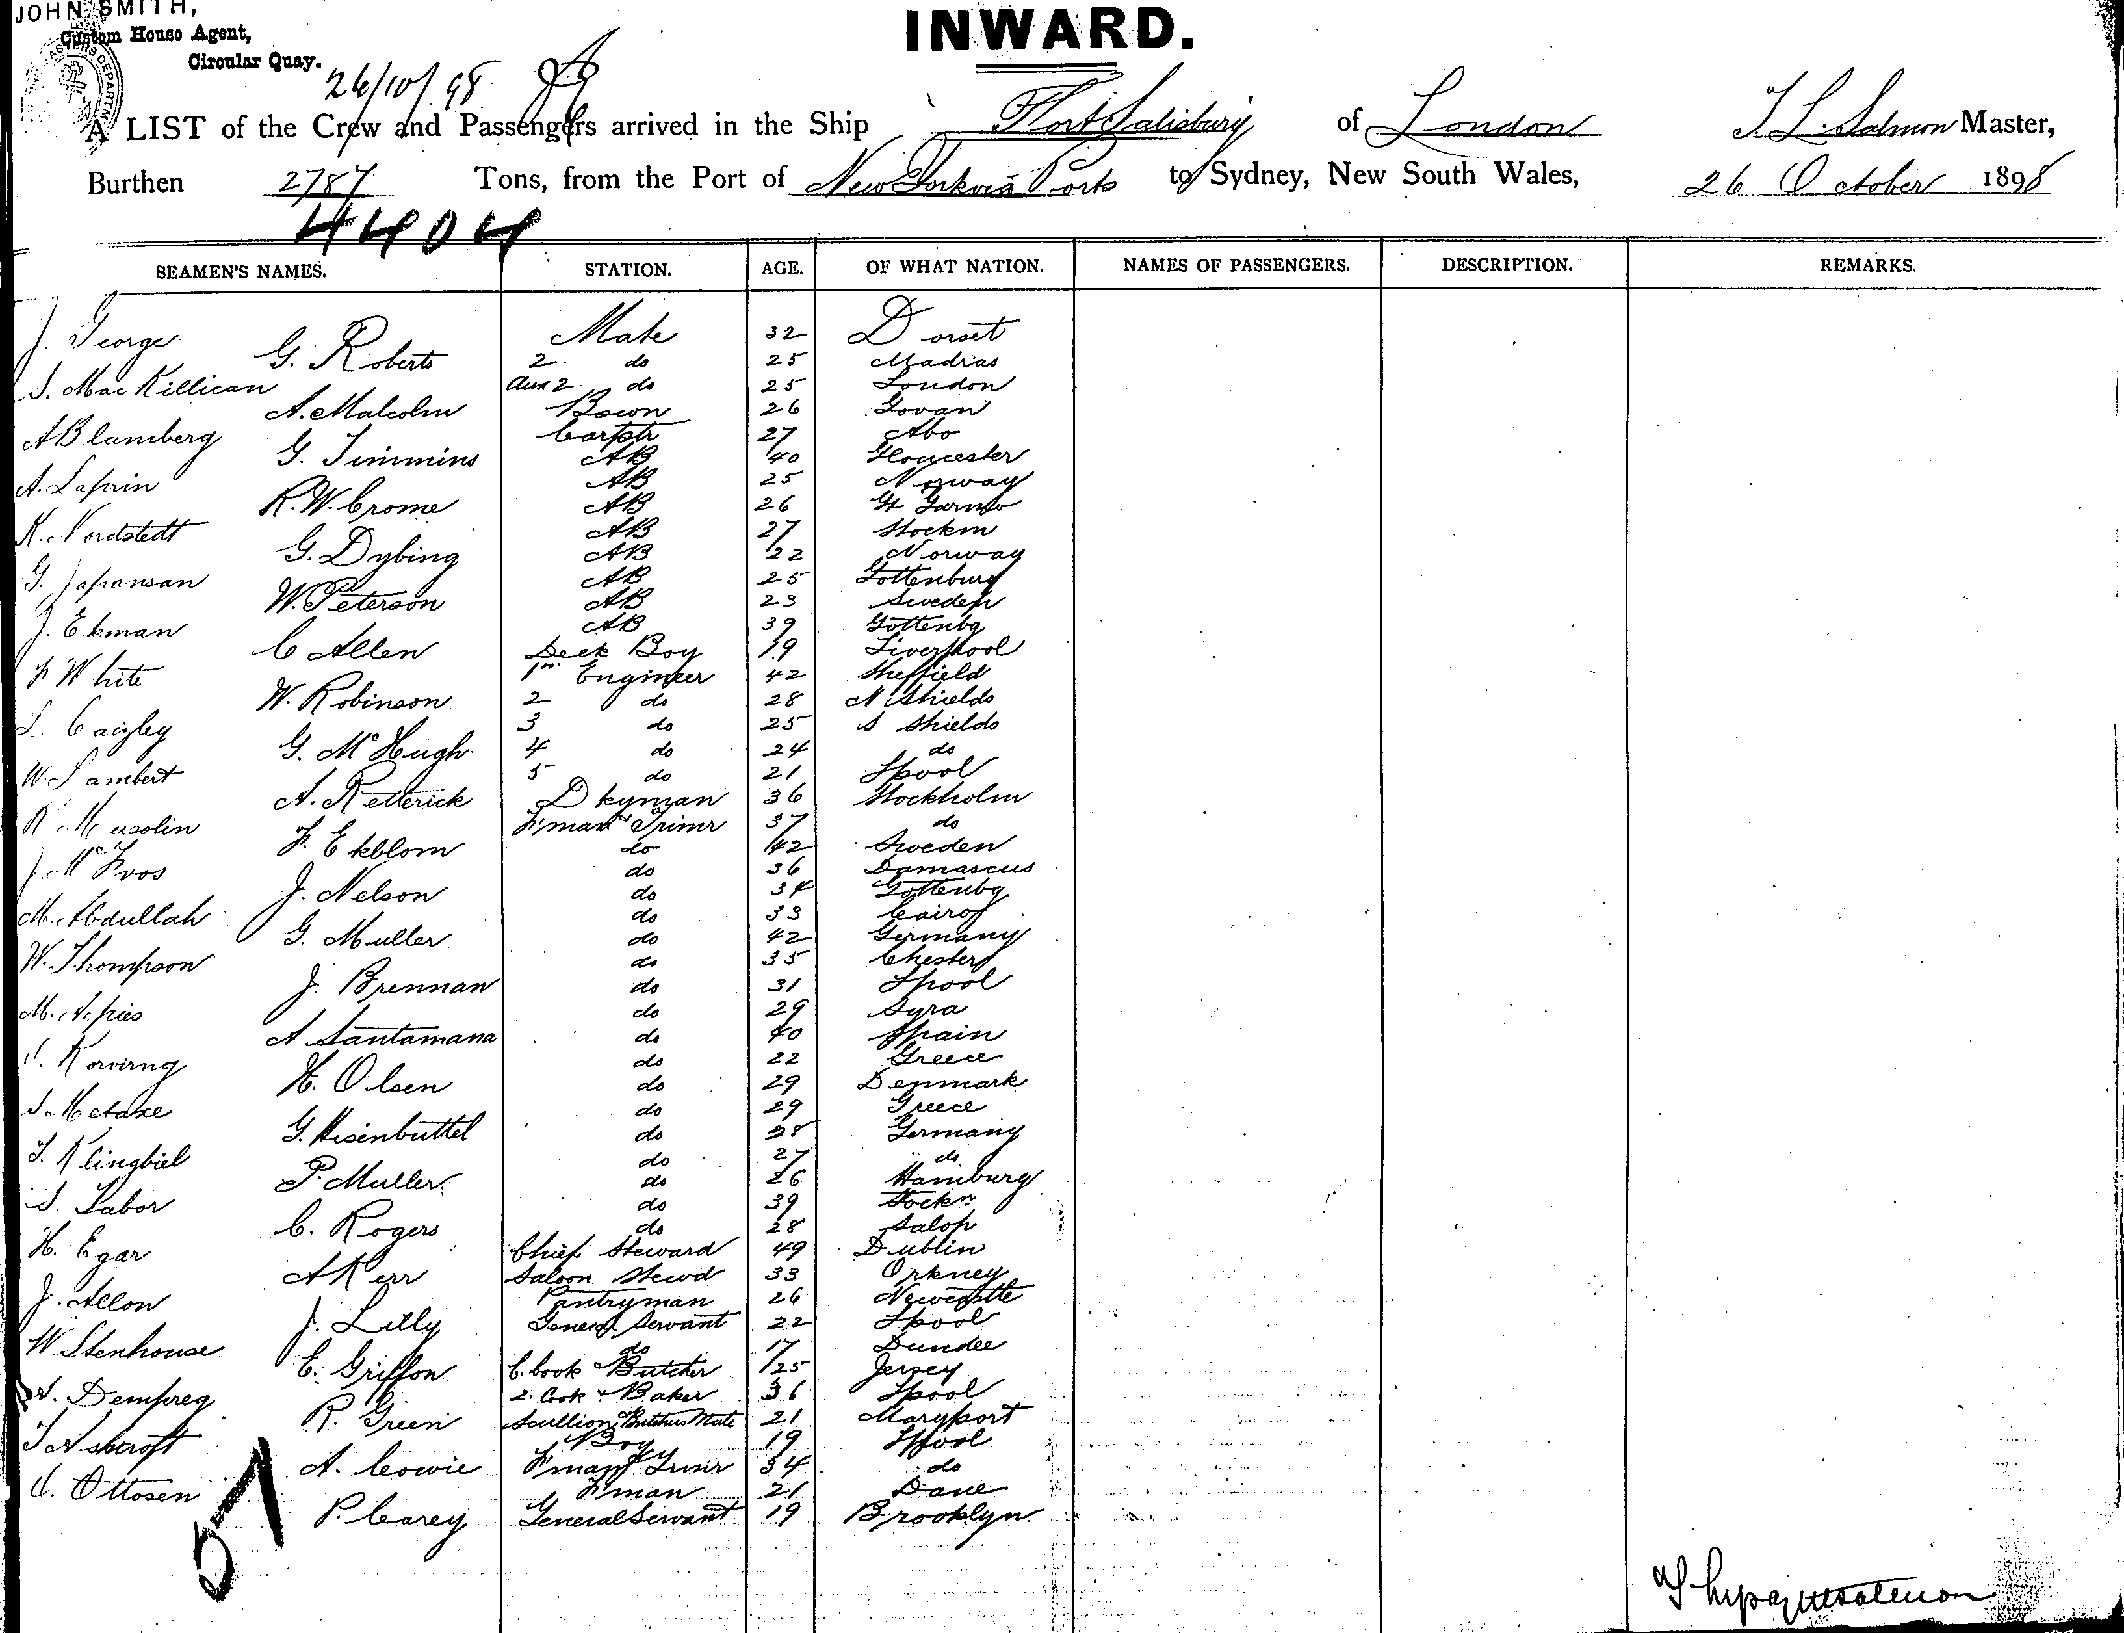 JOHN SMITH,
Custom House Agent,
Circular Quay.
26/10/98
INWARD.
A LIST of the Crew and Passengers arrived in the Ship Fort Salisbury of London T. L. Salmon Master,
Burthen 2787 Tons, from the Port of New York via Ports to Sydney, New South Wales, 26 October 1898
4404
SEAMEN'S NAMES. STATION. AGE. OF WHAT NATION. NAMES OF PASSENGERS. DESCRIPTION. REMARKS.
J. George Mate 32 Dorset
G. Roberts 2 do 25 Madras
S. MacKillican Aux 2 do 25 London
A. Malcolm Bosun 26 Govan
A Blamberg Carptr 27 Abo
G. Timmins AB 40 Gloucester
A. Laprin AB 25 Norway
R. W. Crome AB 26 Gt Yarmo
K. Nordstedt AB 27 Stockm
G. Dybing AB 22 Norway
G. Japansan AB 25 Gottenburg
W. Peterson AB 23 Sweden
J. Ekman AB 39 Gottenbg
C Allen Deck Boy 19 Liverpool
F White 1st Engineer 42 Sheffield
W. Robinson 2 do 28 N Shields
L. Caigley 3 do 25 S Shields
G. McHugh 4 do 24 do
W. Lambert 5 do 21 Lpool
A. Retterick Dkyman 36 Stockholm
R Musolin F'man & Trimr 37 do
F. Ekblom do 42 Sweden
J. do 36 Damascus
J. Nelson do 34 Gottenbg
M. Abdullah do 33 Cairo
G. Muller do 42 Germany
W. Thompson do 35 Chester
J. Brennan do 31 Lpool
M. Apies do 29 Syra
A Santamana do 40 Spain
do 22 Greece
H. Olsen do 29 Denmark
S. Metaxe do 29 Greece
G. Hisenbuttel do 28 Germany
T. Klingbiel do 27 do
P. Muller do 26 Hamburg
S. Tabor do 39 Stockn
C. Rogers do 28 Salop
H. Egar Chief Steward 49 Dublin
A Kerr Saloon Stewd 33 Orkney
J. Allon Pantryman 26 Newcastle
J. Lilly General Servant 22 Lpool
W Stenhouse do 17 Dundee
E. Griffon C. Cook & Butcher 25 Jersey
Dempreg 2. Cook & Baker 36 Lpool
R. Green Scullion & Butchers Mate 21 Maryport
T Ashcroft Boy 19 Lpool
A. Cowie F'man & Trimr 34 do
C. Ottosen F'man 21 Dane
P. Carey General Servant 19 Brooklyn
51